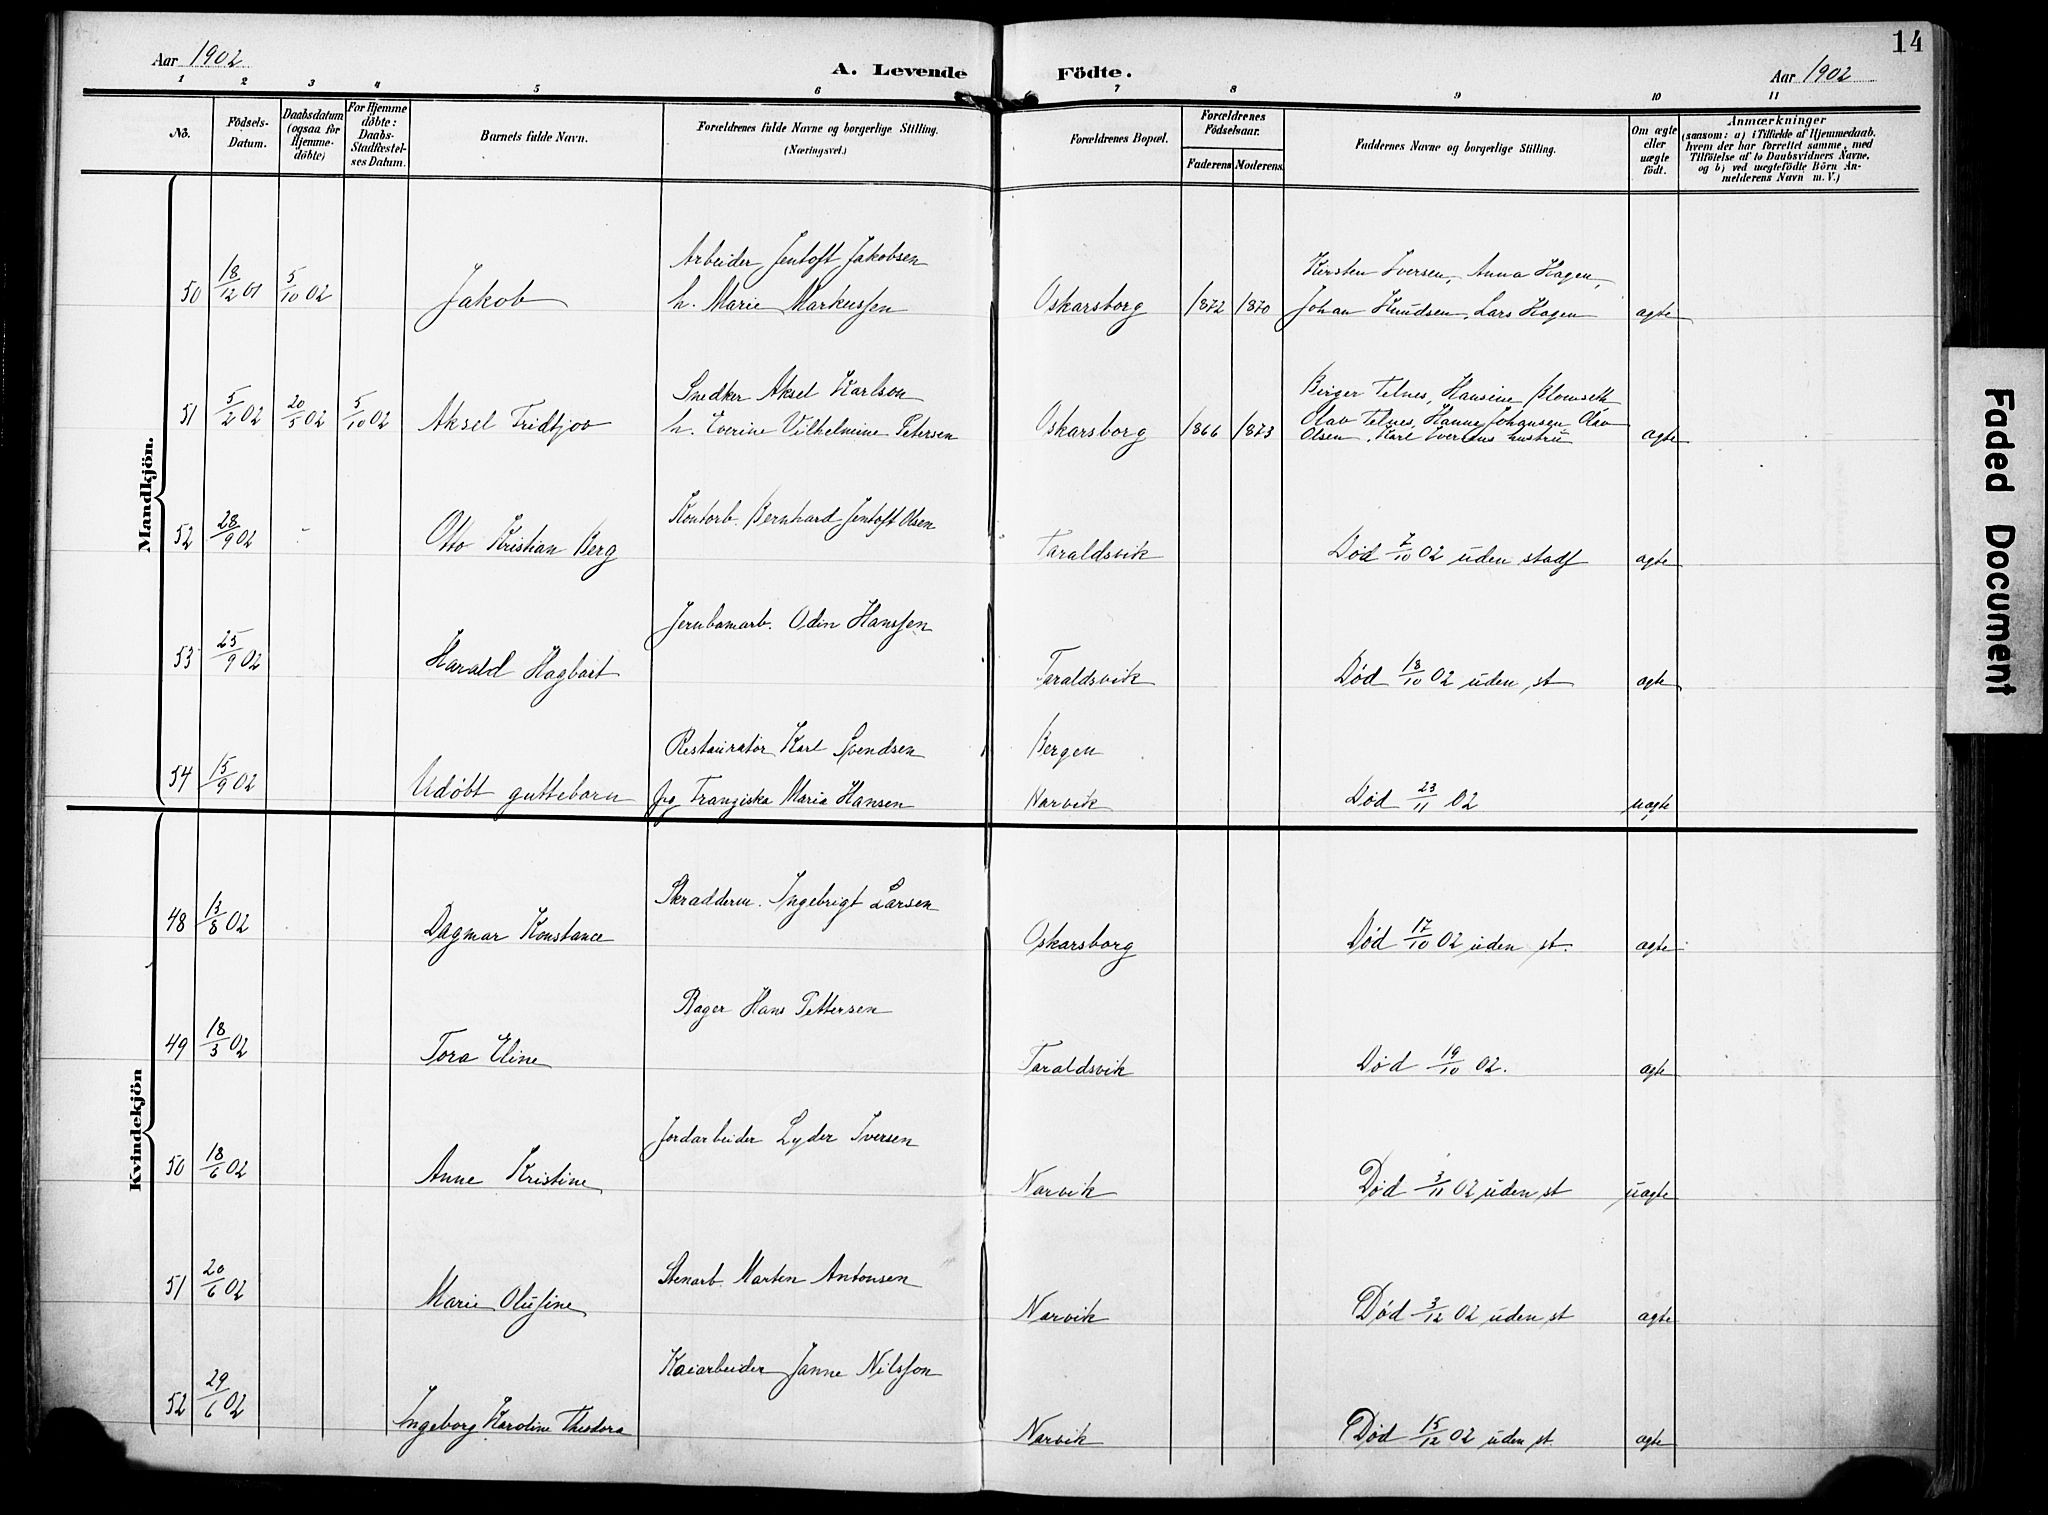 14
Aar 1902
A. Levende Födte.
Aar 1902
1 2 3 4 5 6 7 8 9 10 11
No.
Födsels-
Datum.
Daabsdatum
(ogsaa for
Hjemme-
döbte)
For Hjemme
döbte:
Daabs-
Stadfæstel-
ses Datum.
Barnets fulde Navn.
Forældrenes fulde Navne og borgerlige Stilling.
(Næringsvei.)
Forældrenes Bopæl.
Forældrenes
Födselsaar.
Faderens Moderens
Faddernes Navne og borgerlige Stilling.
Om ægte
eller
uægte
födt.
Anmærkninger
(saasom: a) i Tilfælde af Hjemmedaab,
hvem der har forrettet samme, med
Tilföielse af to Daabsvidners Navne,
og b) ved uægtefödte Börn An-
melderens Navn m. V.)
Mandkjön.
Arbeider Jentoft Jakobsen
Kirsten Iversen, Anna Hagen,
50 18/12 01 5/10 02 Jakob h. Marie Markussen Oskarsborg 1872 1870 Johan Knudsen, Lars Hagen ægte
Snedker Aksel Karlson
Birger Telnes, Hansine Blomseth
51 5/2 02 20/5 02 5/10 02 Aksel Fridtjov h. Everine Vilhelmine Petersen Oskarsborg 1866 1873 Olav Telnes, Hanne Johansen Olav
Olsen, Karl Iversens hustru ægte
Kontorb. Bernhard Jentoft Olsen
52 28/9 02 Otto Kristian Berg Taraldsvik Død 7/10 02 uden stadf ægte
Jernbanarb. Odin Hanssen
53 25/9 02 Harald Hagbart Taraldsvik Død 18/10 02 uden st ægte
Restauratør Karl Svendsen Bergen
54 15/9 02 Udøbt guttebarn Pg Franziska Maria Hansen Narvik Død 23/11 02 uægte
Kvindekjön
Skrædderm. Ingebrigt Larsen
48 13/8 02 Dagmar Konstance Oskarsborg Død 17/10 02 uden st. ægte
Bager Hans Pettersen
49 18/3 02 Tora Eline Taraldsvik Død 19/10 02. ægte
Jordarbeider Lyder Iversen
50 18/6 02 Anne Kristine Narvik Død 3/11 02 uden st uægte
Stenarb. Marten Antonsen
51 20/6 02 Marie Olusine Narvik Død 3/12 02 uden st ægte
Kaiarbeider Janne Nilsson
52 29/6 02 Ingeborg Karoline Theodora Narvik Død 15/12 02 uden st. ægte
Faded Document